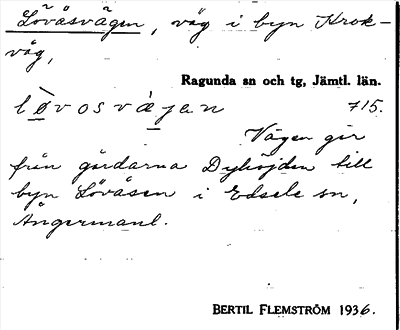 Lövåsvägen, väg i byn Krok-
våg,
Ragunda sn och tg, Jämtl. län.
løvosvæjan 715.
Vägen går
från gårdarna Dyhöjden till
byn Lövåsen i Edsele sn,
Ångermanl.
BERTIL FLEMSTRÖM 1936.